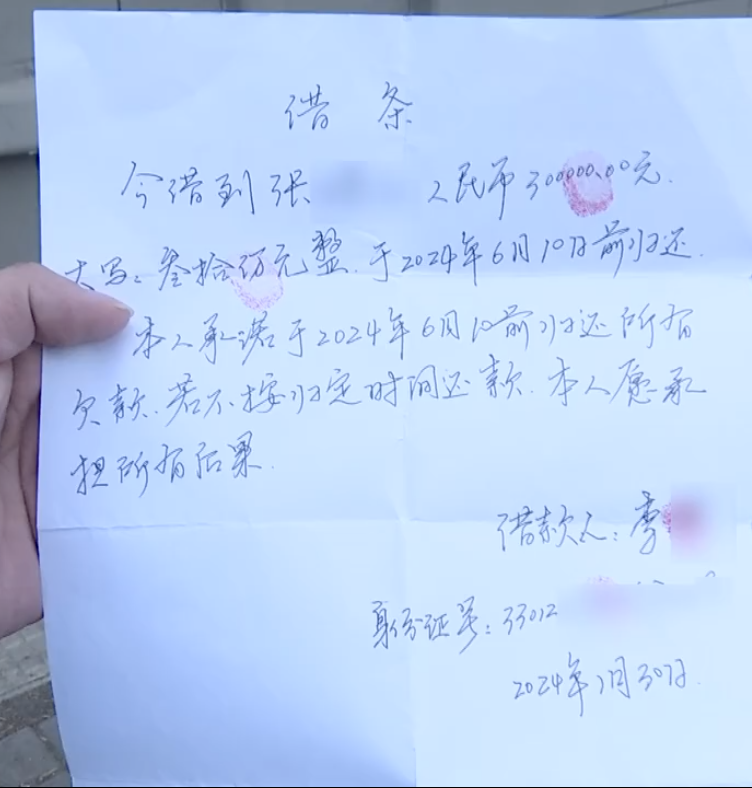 借 条
今借到张 人民币300000.00元.
大写：叁拾万元整.于2024年6月10日前归还.
本人承诺于2024年6月10前归还所有
欠款.若不按归定时间还款.本人愿承
担所有后果.
借款人：李
身份证号：33012
2024年1月30日.